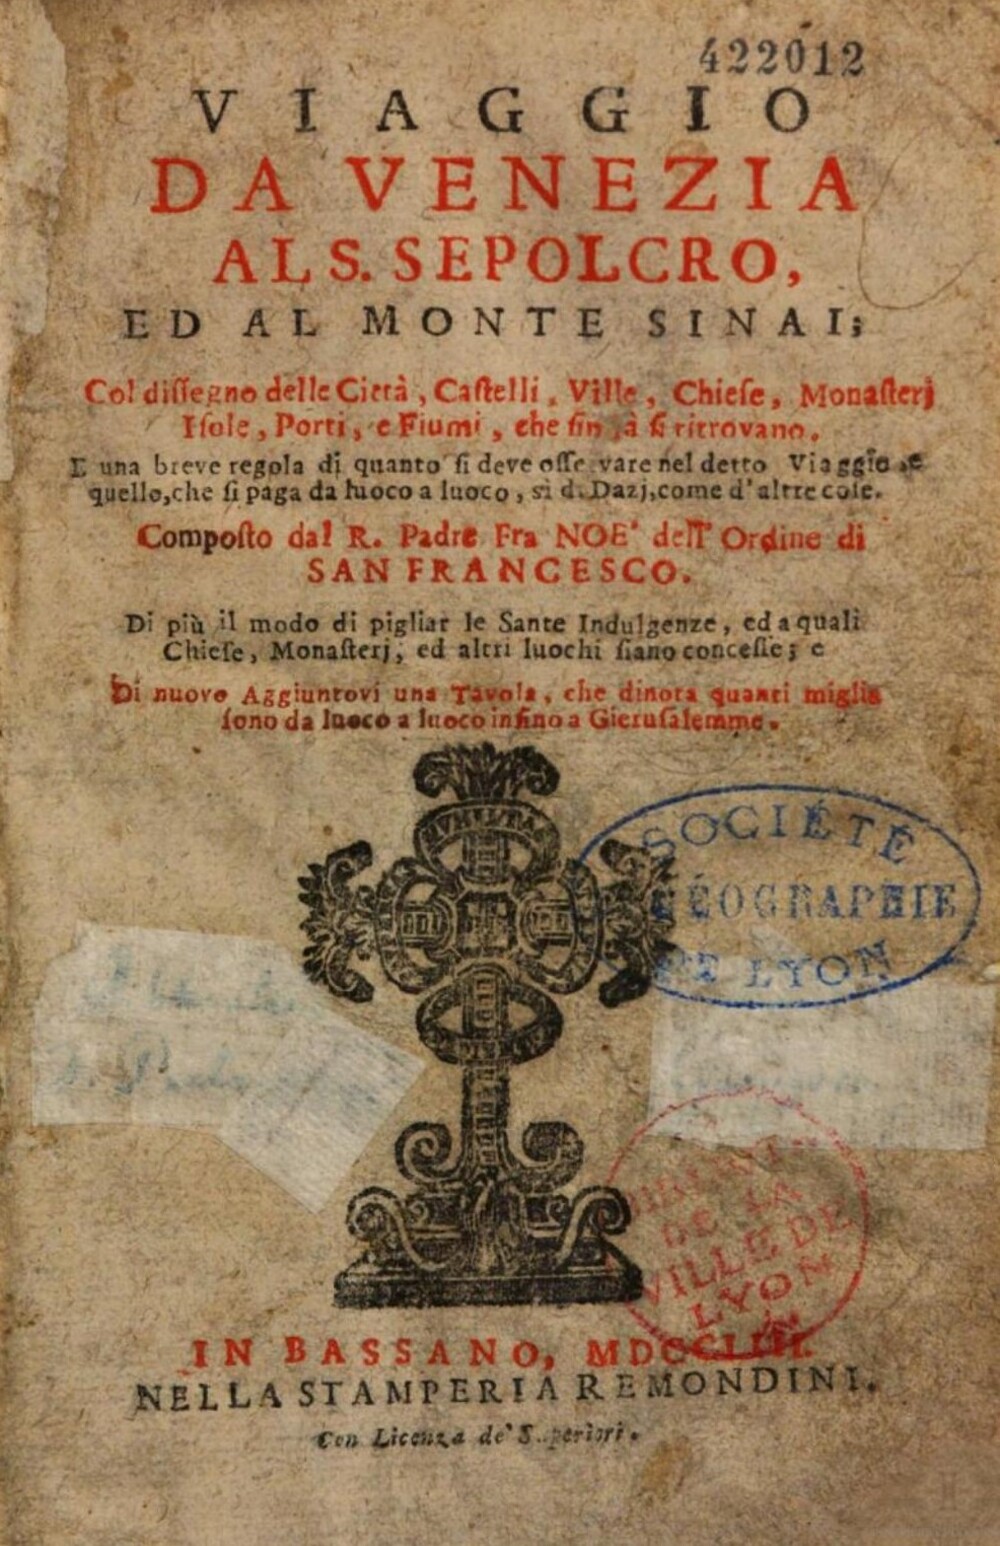 422012
VIAGGIO
DA VENEZIA
AL S. SEPOLCRO,
ED AL MONTE SINAI;
Col dissegno delle Città, Castelli, Ville, Chiese, Monasterj
Isole, Porti, e Fiumi, che fin là si ritrovano.
E una breve regola di quanto si deve osservare nel detto Viaggio, e
quello, che si paga da luoco a luoco, sì di Dazj, come d'altre cose.
Composto dal R. Padre Fra NOE' dell' Ordine di
SAN FRANCESCO.
Di più il modo di pigliar le Sante Indulgenze, ed a quali
Chiese, Monasterj, ed altri luochi siano concesse; e
Di nuovo Aggiuntovi una Tavola, che dinota quanti miglia
sono da luoco a luoco insino a Gierusalemme.
HVMILITAS
SOCIÉTÉ
GÉOGRAPHIE
DE LYON
DE LA
VILLE DE
LYON
IN BASSANO, MDCCLIII.
NELLA STAMPERIA REMONDINI.
Con Licenza de' Superiori.